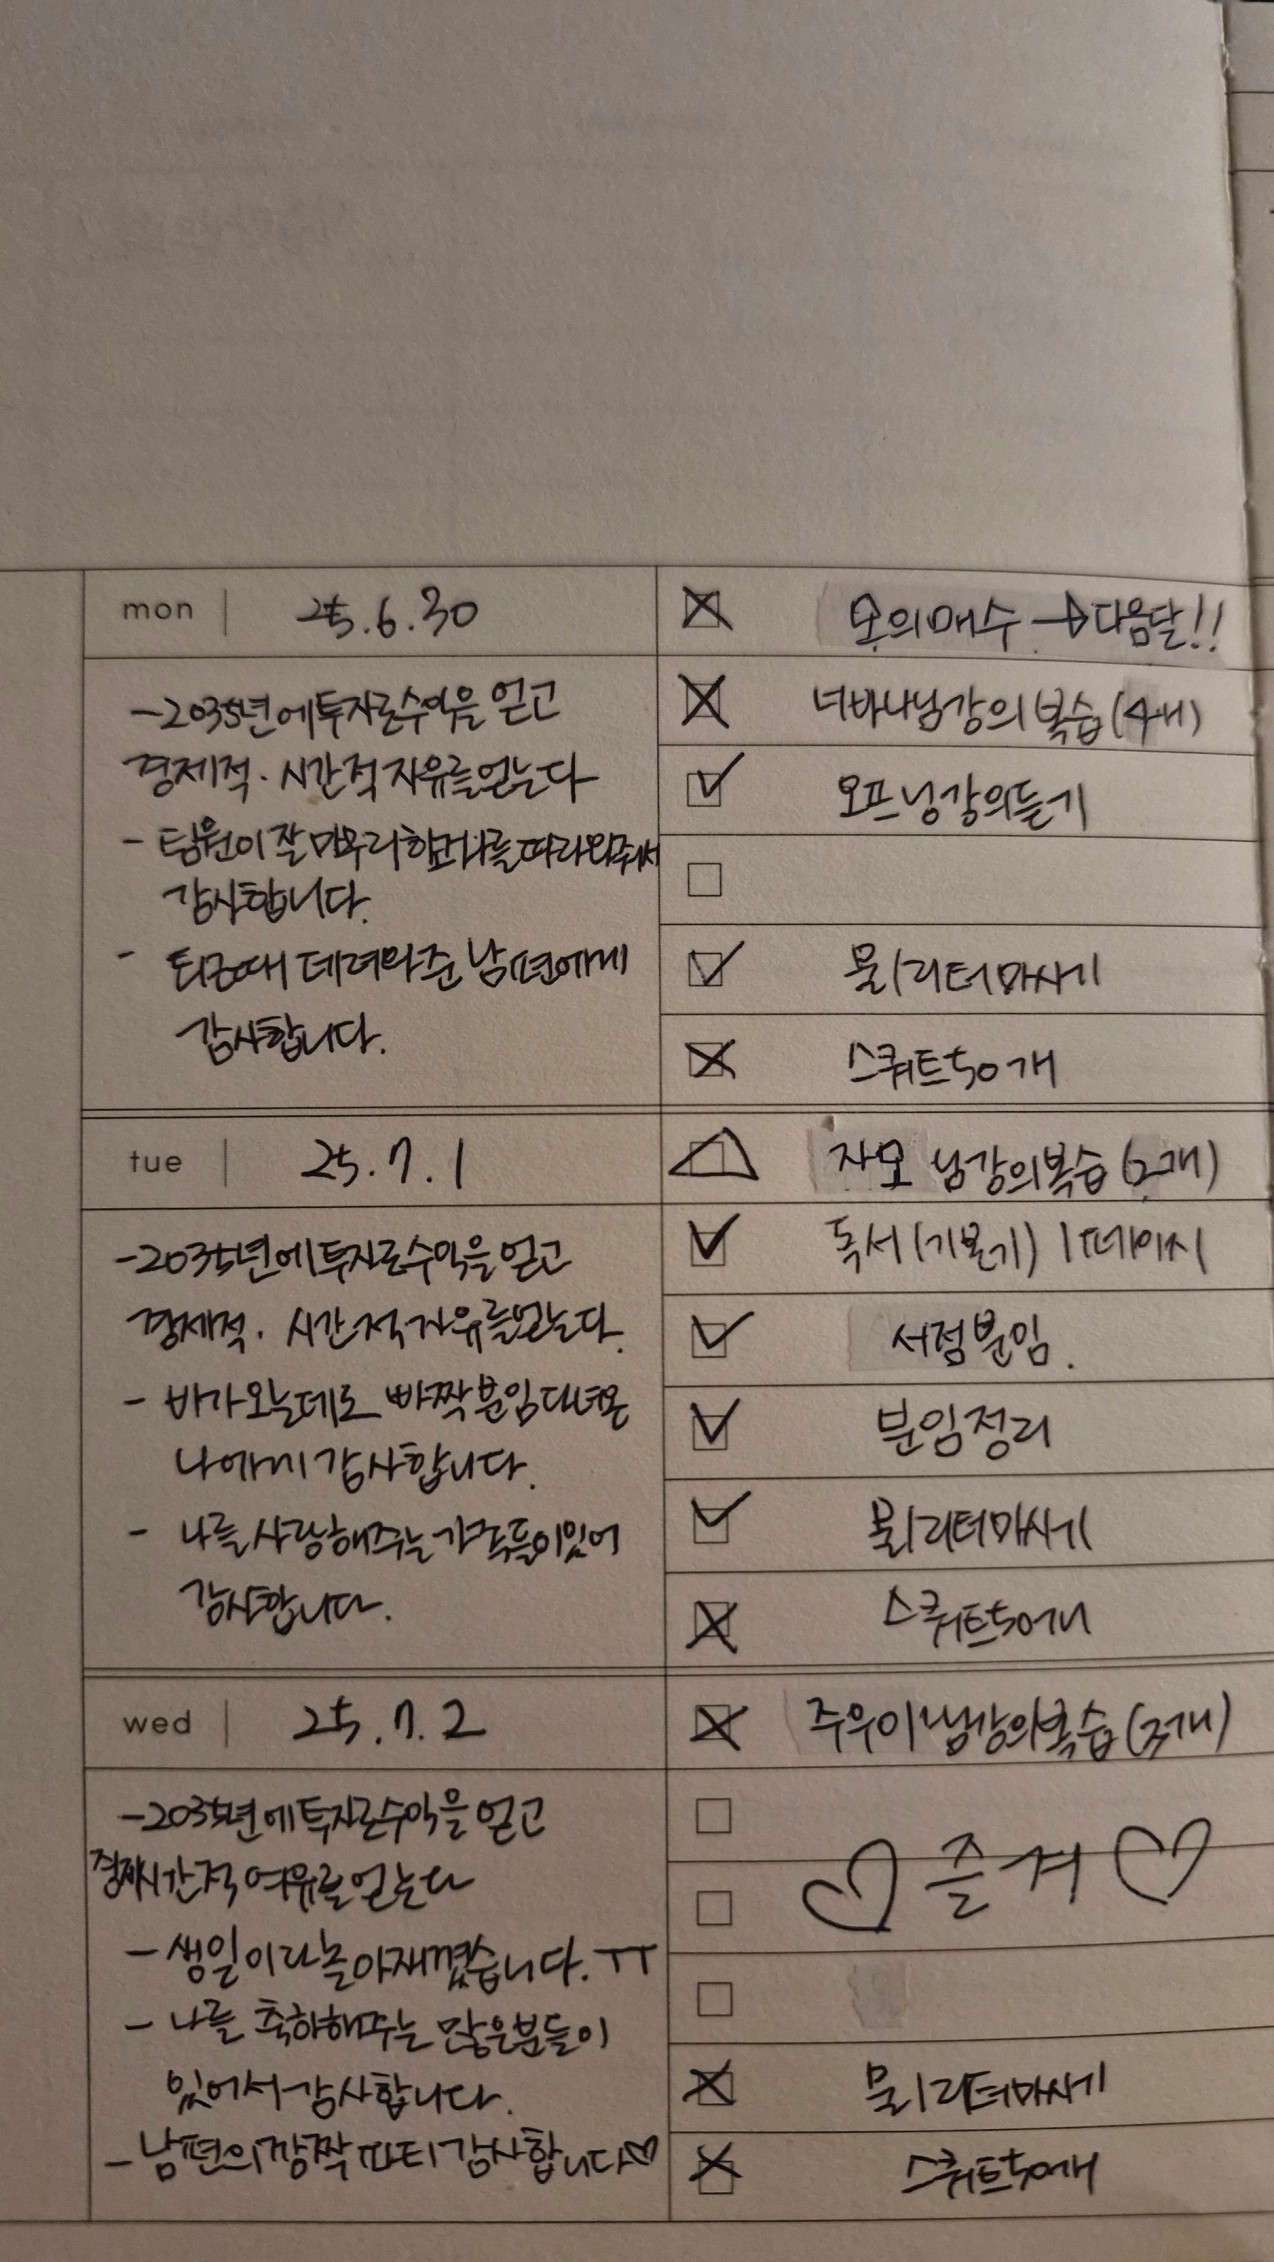 mon | 25.6.30
- 2035년에 투자로 수익을 얻고
경제적. 시간적 자유를 얻는다
- 팀원이 잘 마무리하고 나를 따라와줘서
감사합니다.
- 퇴근때 데려와준 남편에게
감사합니다.
모의매수 → 다음달!!
너바나님강의 복습 (4개)
오프닝강의듣기
물1리터마시기
스쿼트50개
tue | 25.7.1
- 2035년에 투자로 수익을 얻고
경제적. 시간적 자유를 얻는다.
- 비가오는데도 빠짝 분임다녀온
나에게 감사합니다.
- 나를 사랑해주는 가족들이있어
감사합니다.
자모님강의복습 (2개)
독서 (기본기) 1페이지
서점분임.
분임정리
물1리터마시기
스쿼트50개
wed | 25.7.2
- 2035년에 투자로 수익을 얻고
경제시간적 여유를 얻는다
- 생일이라 놀아재꼈습니다. ㅜㅜ
- 나를 축하해주는 많은분들이
있어서 감사합니다.
- 남편의 깜짝 파티 감사합니다♡
주우이님강의복습 (3개)
♡ 즐겨 ♡
물1리터마시기
스쿼트50개